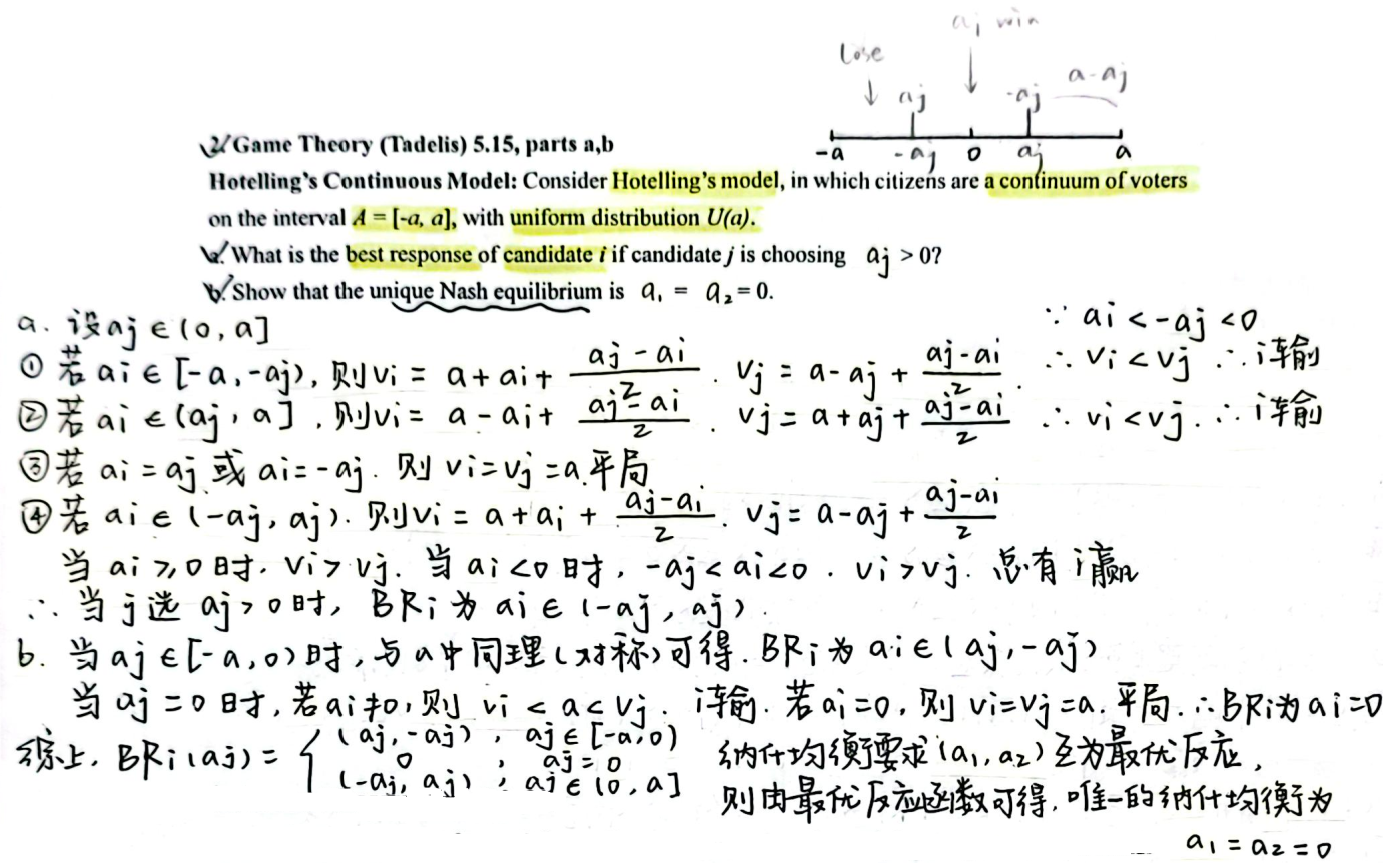 aj win
lose
aj
-aj
a-aj
-a
-aj
0
aj
a
2. Game Theory (Tadelis) 5.15, parts a,b
Hotelling's Continuous Model: Consider Hotelling's model, in which citizens are a continuum of voters
on the interval A = [-a, a], with uniform distribution U(a).
a. What is the best response of candidate i if candidate j is choosing aj > 0?
b. Show that the unique Nash equilibrium is a₁ = a₂ = 0.
a. 设aj∈(0,a]
① 若ai∈[-a,-aj), 则vi = a+ai+\frac{aj-ai}{2}. vj = a-aj+\frac{aj-ai}{2}. ∵ ai<-aj<0 ∴ vi<vj ∴ i输
② 若ai∈(aj,a], 则vi = a-ai+\frac{aj-ai}{2}. vj = a+aj+\frac{aj-ai}{2} ∴ vi<vj. ∴ i输
③ 若ai=aj或ai=-aj. 则vi=vj=a.平局
④ 若ai∈(-aj,aj). 则vi = a+ai+\frac{aj-ai}{2}. vj = a-aj+\frac{aj-ai}{2}
当ai≥0时, vi>vj. 当ai<0时, -aj<ai<0. vi>vj. 总有i赢
∴ 当j选aj>0时, BRi为ai∈(-aj,aj).
b. 当aj∈[-a,0)时,与a中同理(对称)可得.BRi为ai∈(aj,-aj)
当aj=0时,若ai≠0,则vi<a<vj. i输.若ai=0,则vi=vj=a.平局.∴BRi为ai=0
综上, BRi(aj) = { (aj,-aj), aj∈[-a,0)
0, aj=0
(-aj,aj), aj∈(0,a]
纳什均衡要求(a₁,a₂)互为最优反应,
则由最优反应函数可得,唯一的纳什均衡为
a₁=a₂=0